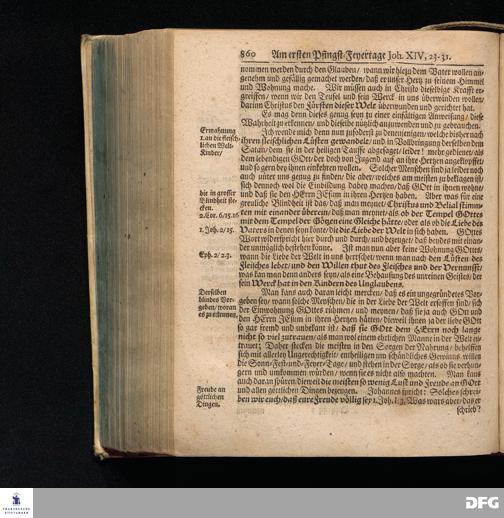 860 Am ersten Pfingst-Feyertage Joh. XIV, 23-31.
nommen werden durch den Glauben / wann wir hiezu dem Vater wollen an-
genehm und gefällig gemachet werden / daß er unser Hertz zu seinem Himmel
und Wohnung mache. Wir müssen auch in Christo dieselbige Krafft er-
greiffen / wenn wir den Teufel und sein Werck in uns überwinden wollen /
darinn Christus den Fürsten dieser Welt überwunden und gerichtet hat.
Es mag denn dieses genug seyn zu einer einfältigen Anweisung / diese
Wahrheit zu erkennen / und dieselbe nützlich anzuwenden und zu gebrauchen.
Ermahnung
1. an die fleisch-
lichen Welt-
Kinder /
Ich wende mich denn nun zuforderst zu denenjenigen / welche bißher nach
ihren fleischlichen Lüsten gewandelt / und in Vollbringung derselben dem
Satan / dem sie in der heiligen Tauffe abgesaget / leider! mehr gedienet / als
dem lebendigen GOtt / der doch von Jugend auf an ihre Hertzen angeklopffet /
und so gern bey ihnen einkehren wollen. Solcher Menschen sind ja leider noch
auch unter uns genug zu finden / die aber / welches am meisten zu beklagen ist /
sich dennoch wol die Einbildung dabey machen / daß GOtt in ihnen wohne /
und daß sie den HErrn JEsum in ihren Hertzen haben. Aber was für eine
die in grosser
Blindheit ste-
cken.
2. Cor. 6/15.16
greuliche Blindheit ist das / daß man meynet / Christus und Belial stimm-
ten mit einander überein / daß man meynet / als ob der Tempel GOttes
mit dem Tempel der Götzen eine Gleiche hätte / oder als ob die Liebe des
1. Joh. 2/15.
Vaters in denen seyn könte / die die Liebe der Welt in sich haben. GOttes
Wort widerspricht hier durch und durch / und bezeuget / daß beydes mit einan-
der unmöglich bestehen könne. Ist nun nun aber keine Wohnung GOttes /
Eph. 2/2.3.
wann die Liebe der Welt in uns herrschet / wenn man nach den Lüsten des
Fleisches lebet / und den Willen thut des Fleisches und der Vernunfft;
was kan man denn anders seyn / als eine Behausung des unreinen Geistes / der
sein Werck hat in den Kindern des Unglaubens.
Derselben
blindes Vor-
geben / woran
es zu erkennen.
Man kans auch daran leicht mercken / daß es ein ungegründetes Vor-
geben sey / wann solche Menschen / die in der Liebe der Welt ersoffen sind / sich
der Einwohnung GOttes rühmen / und meynen / daß sie ja auch GOtt und
den HErrn JEsum in ihren Hertzen hätten; dieweil ihnen ja der liebe GOtt
so gar fremd und unbekant ist / daß sie GOtt dem HErrn noch lange
nicht so viel zutrauen / als man wol einem ehrlichen Manne in der Welt zu-
trauet; Daher stecken die meisten in den Sorgen der Nahrung / behelffen
sich mit allerley Ungerechtigkeit / entheiligen um schändliches Gewinns willen
die Sonn-Fest-und-Feyer-Tage / und stehen in der Sorge / als ob sie verhun-
gern und umkommen würden / wenn sie es nicht also machten. Man kans
Freude an
göttlichen
Dingen.
auch daran spüren / dieweil die meisten so wenig Lust und Freude an GOtt
und allen göttlichen Dingen bezeugen. Johannes spricht: Solches schrei-
ben wir euch / daß eure Freude völlig sey 1. Joh. 1.3. Was wars aber / das er
schrieb?
FRANCKESCHE
STIFTUNGEN
DFG